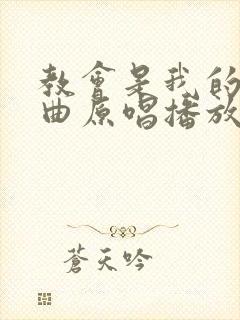 教會是我的
曲原唱播放
蒼天吟